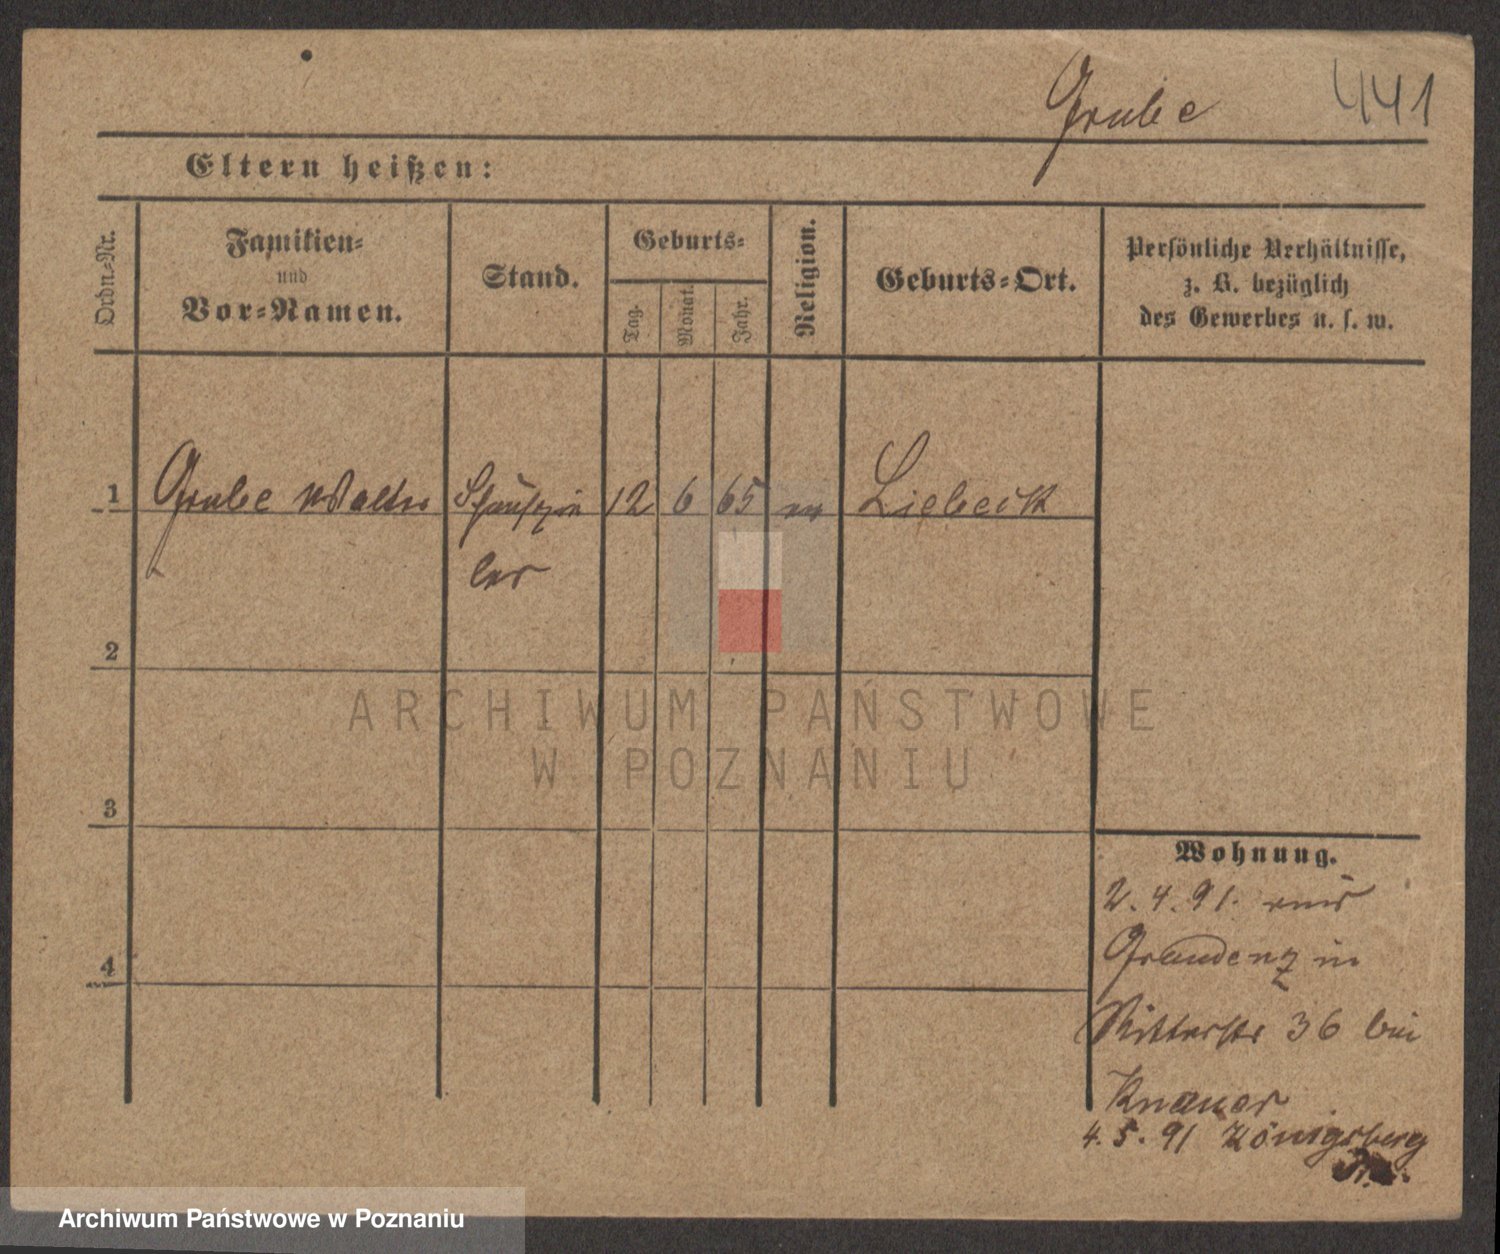 Grube 441
Eltern heißen:
Ordn.=Nr.
Familien=
und
Vor=Namen.
Stand.
Geburts=
Tag.
Monat.
Jahr.
Religion.
Geburts=Ort.
Persönliche Verhältnisse,
z. B. bezüglich
des Gewerbes u. s. w.
1 Grube Walter Schauspie 12 6 65 ev
ler
2
3
4
Wohnung.
2. 4. 91. aus
Graudenz in
Ritterstr 36 bei
Knauer
4. 5. 91 Königsberg
ARCHIWUM PAŃSTWOWE
W POZNANIU
Archiwum Państwowe w Poznaniu